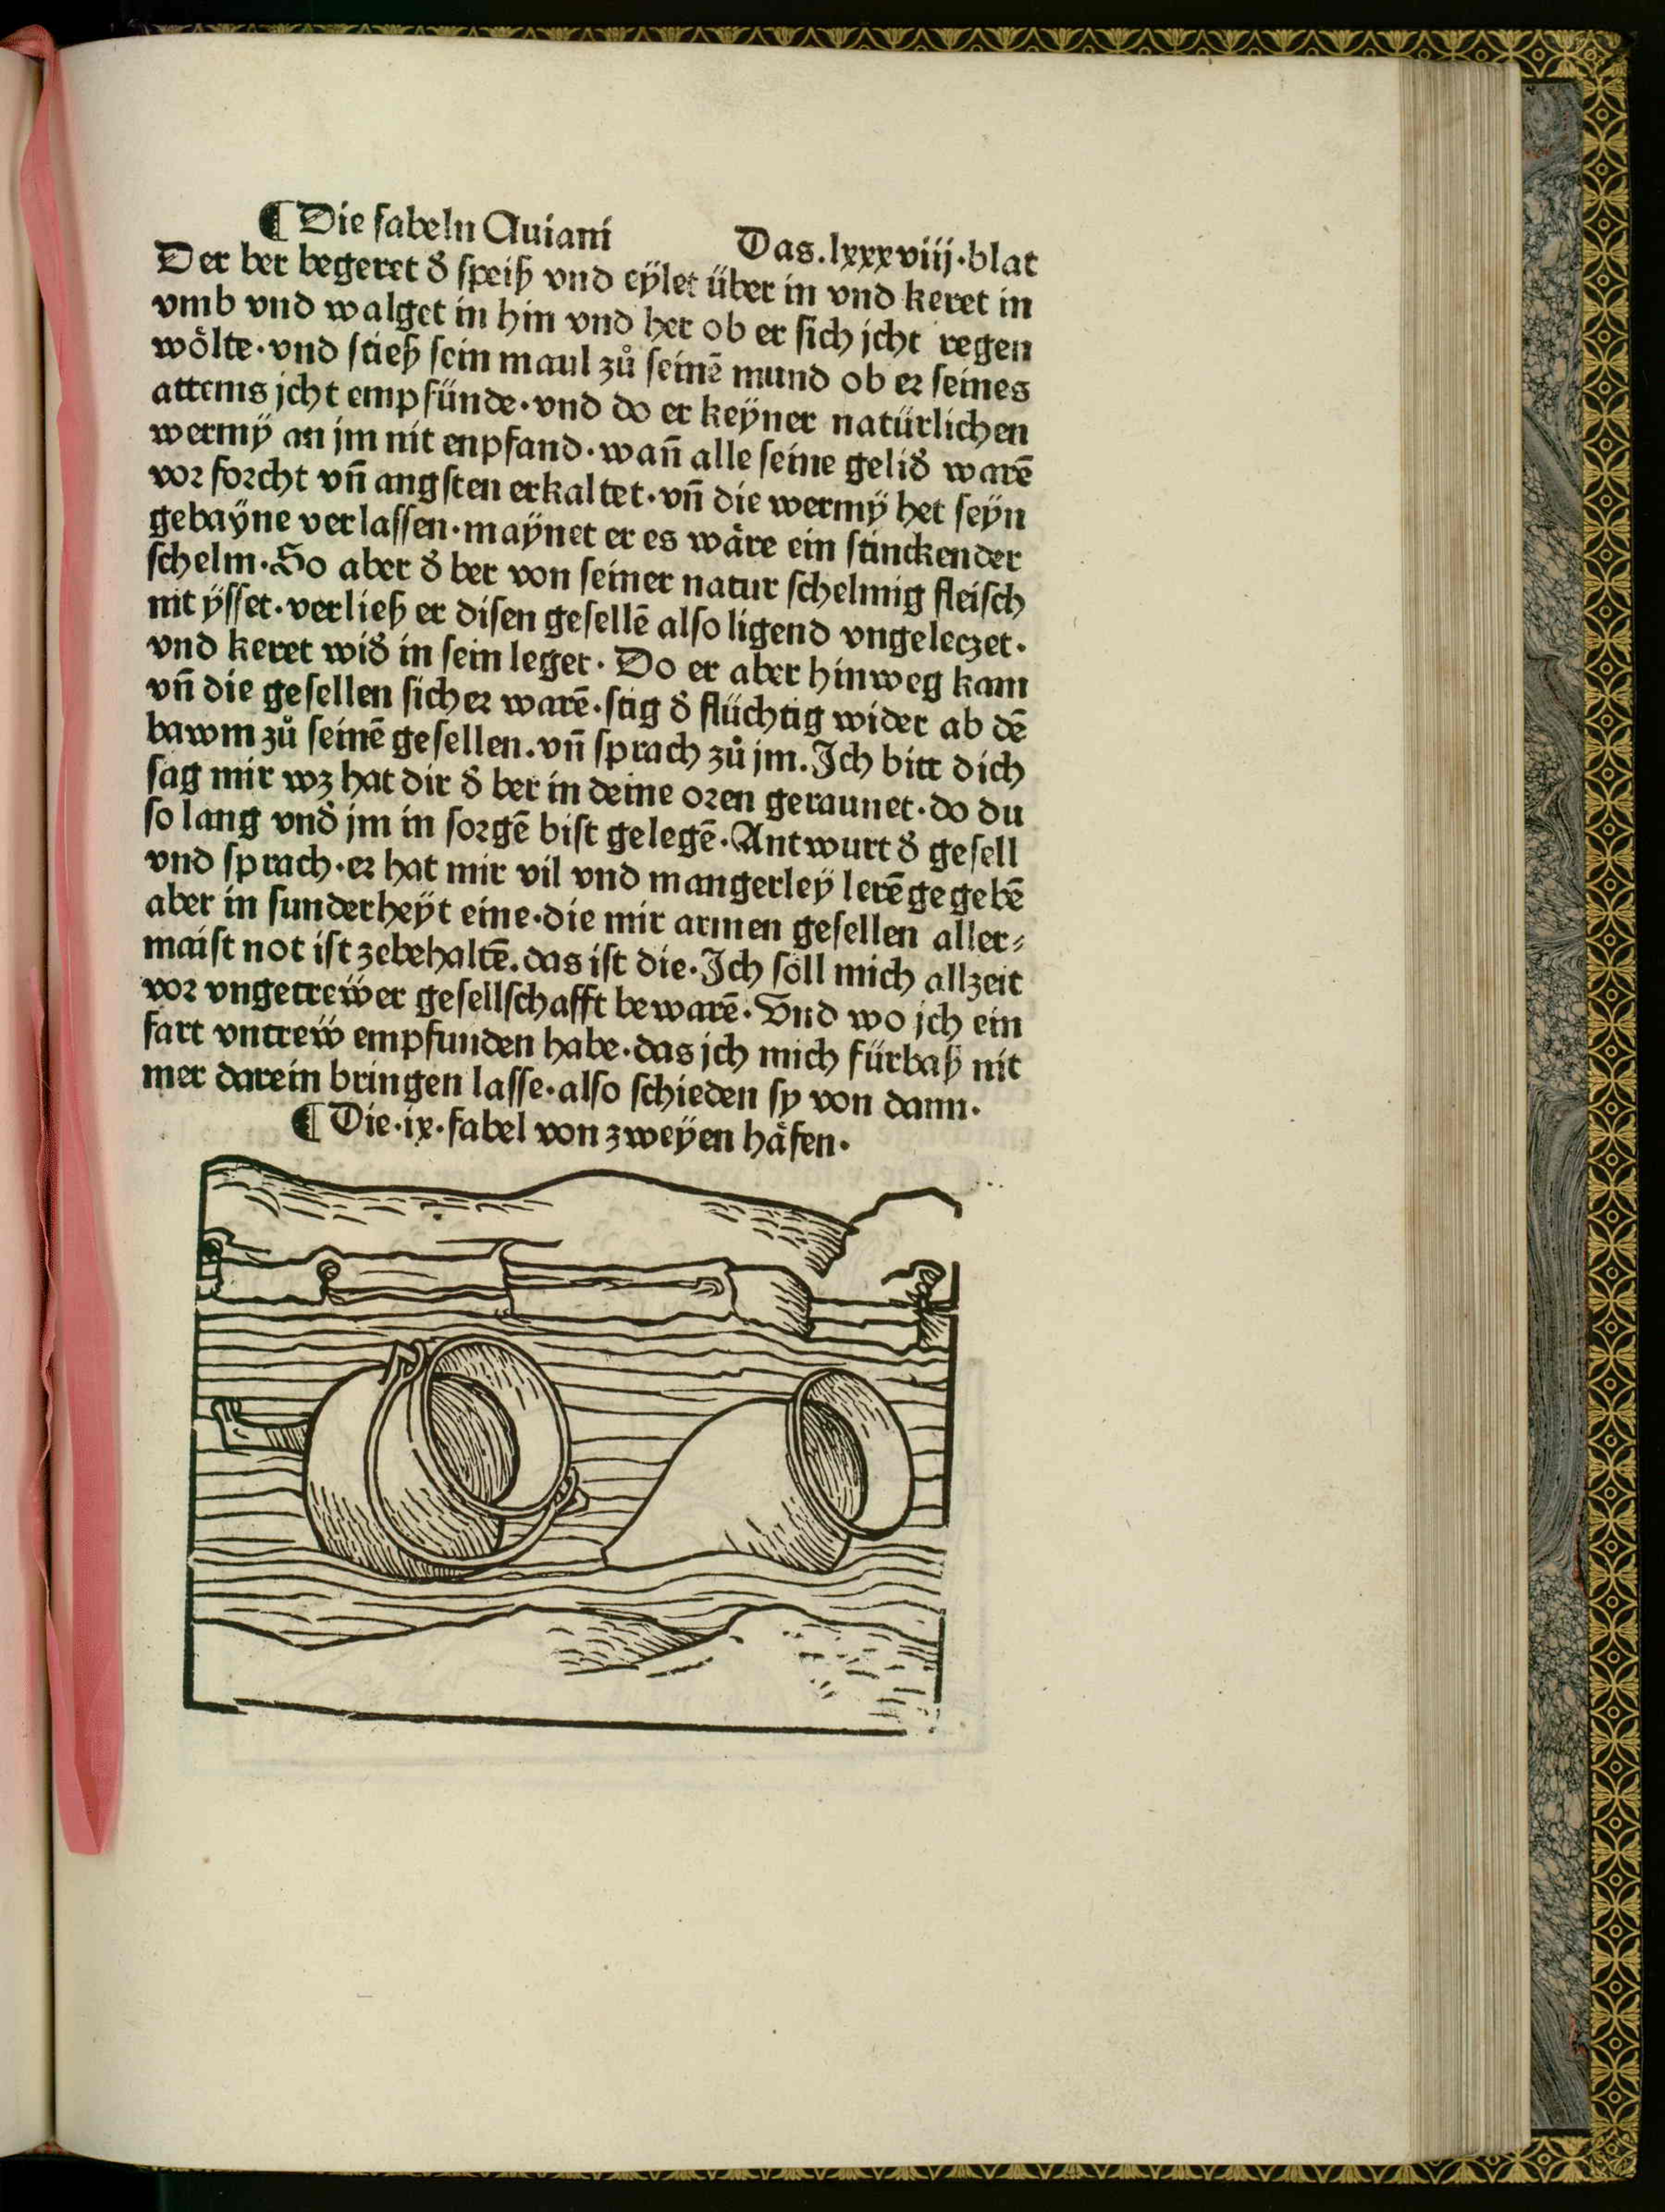 ¶ Die fabeln Auiani Das.lxxxviij.blat
Der ber begeret d̕ speiß vnd eÿlet über in vnd keret in
vmb vnd walget in hin vnd her ob er sich jcht regen
wölte·vnd stieß sein maul zů seinē mund ob er seines
attems jcht empfünde·vnd do er keÿner natürlichen
wermÿ an jm nit enpfand·wañ alle seine gelid̕ warē
vor forcht vñ angsten erkaltet·vñ die wermÿ het seÿn
gebaÿne verlassen·maÿnet er es wäre ein stinckender
schelm·So aber d̕ ber von seiner natur schelmig fleisch
nit ÿsset·verließ er disen gesellē also ligend vngeleczet·
vnd keret wid̕ in sein leger· Do er aber hinweg kam
vñ die gesellen sicher warē·stig d̕ flüchtig wider ab dē
bawm zů seinē gesellen.vñ sprach zů jm.Ich bitt dich
sag mir wz hat dir d̕ ber in deine oren geraunet·do du
so lang vnd̕ jm in sorgē bist gelegē·Antwurt d̕ gesell
vnd sprach·er hat mir vil vnd mangerleÿ lerē gegebē
aber in sunderheÿt eine·die mir armen gesellen aller⸗
maist not ist zebehaltē.das ist die·Ich söll mich allzeit
vor vngetrew̎er gesellschafft bewarē·Vnd wo jch ein
fart vntrew̎ empfunden habe·das jch mich fürbaß nit
mer darein bringen lasse·also schieden sy von dann·
¶ Die·ix·fabel von zweÿen häfen·